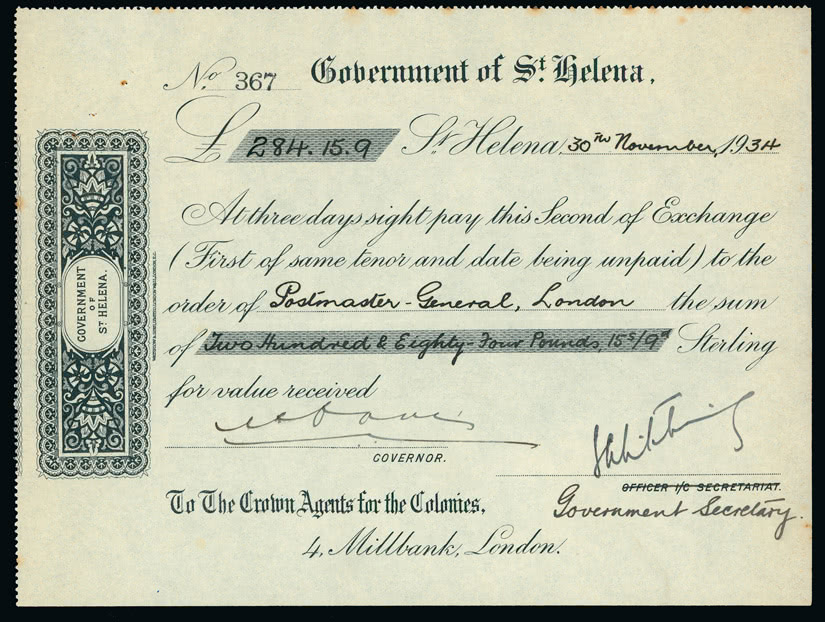 No. 367 Government of St. Helena,
£ 284.15.9 St. Helena, 30TH November, 1934
At three days sight pay this Second of Exchange
(First of same tenor and date being unpaid) to the
order of Postmaster-General, London the sum
of Two Hundred & Eighty-Four Pounds, 15s/9d Sterling
for value received
GOVERNOR.
OFFICER I/C SECRETARIAT.
Government Secretary.
To The Crown Agents for the Colonies,
4, Millbank, London.
GOVERNMENT
OF
ST HELENA.